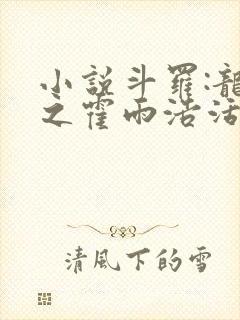 小說斗羅:龍
之霍雨浩活
清風下的雪